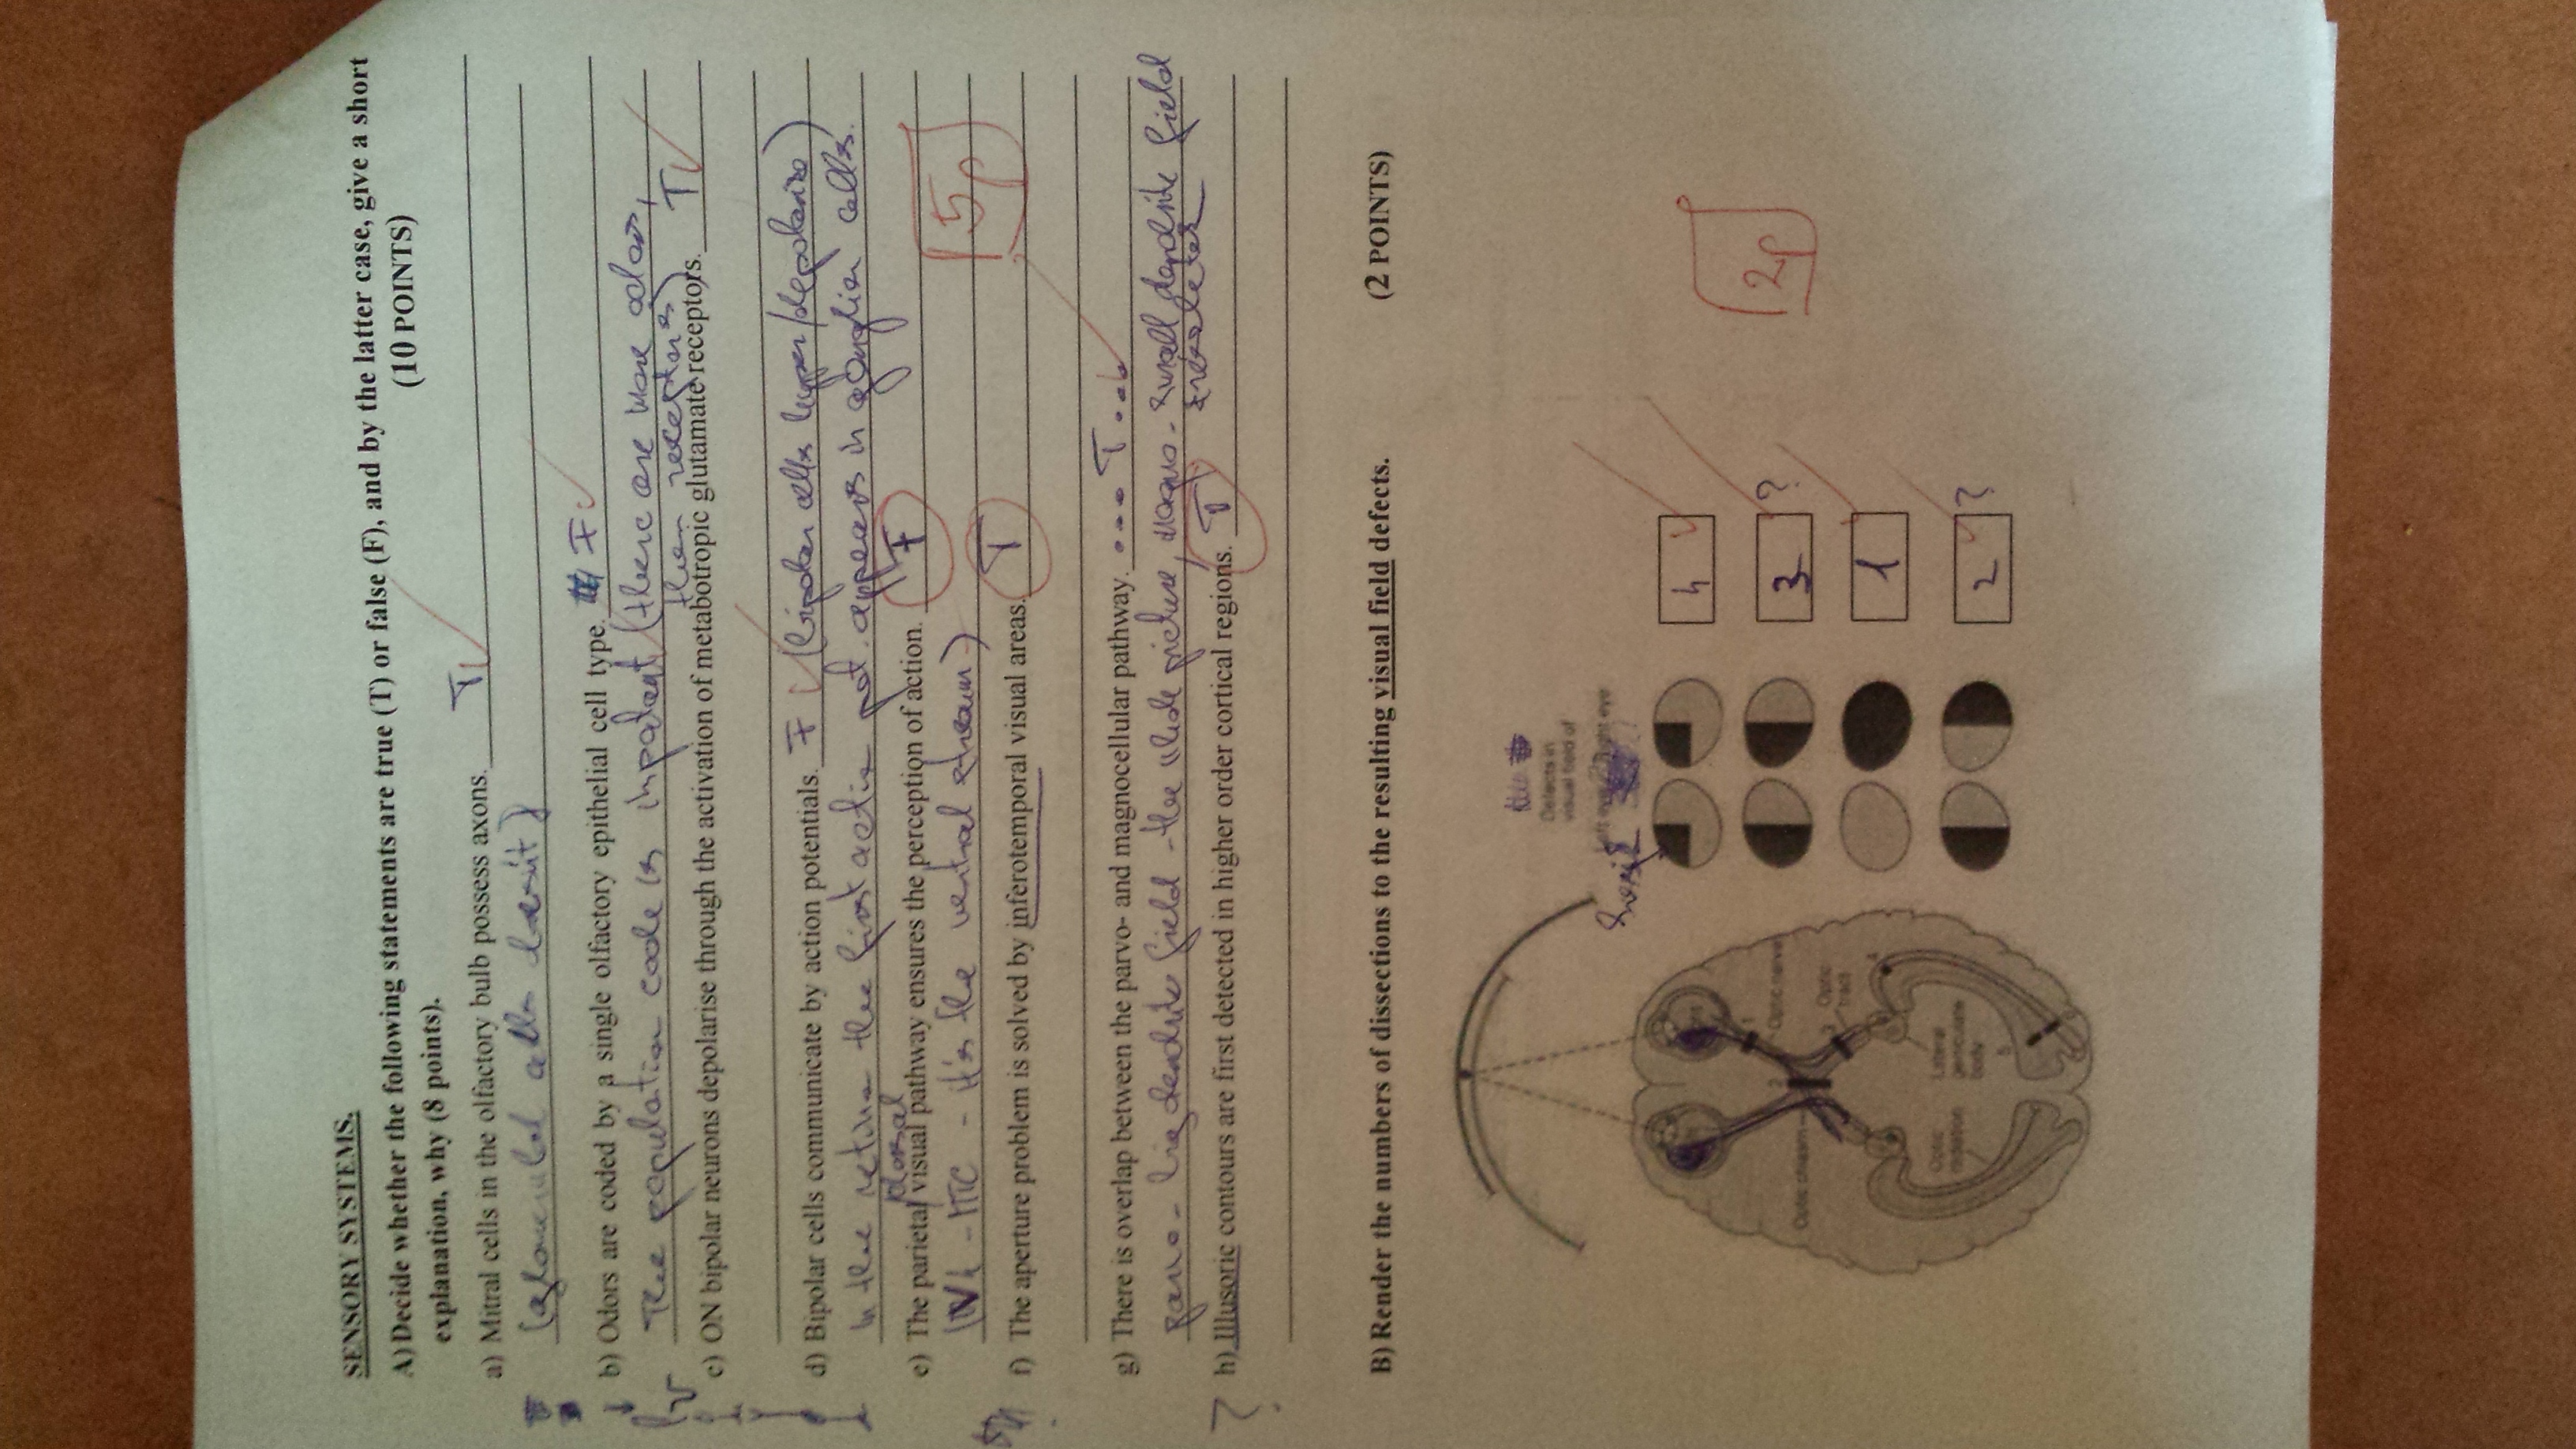 SENSORY SYSTEMS.
A) Decide whether the following statements are true (T) or false (F), and by the latter case, give a short
explanation, why (8 points). (10 POINTS)
a) Mitral cells in the olfactory bulb possess axons. T
b) Odors are coded by a single olfactory epithelial cell type. F
The population code is important (there are more odors,
then receptors)
c) ON bipolar neurons depolarise through the activation of metabotropic glutamate receptors. T
d) Bipolar cells communicate by action potentials. F (bipolar cells hyper/depolarise)
In the retina the first action pot. appears in ganglion cells.
dorsal
e) The parietal visual pathway ensures the perception of action. F
(V4 - ITC - it's the ventral stream)
f) The aperture problem is solved by inferotemporal visual areas. T
5p
g) There is overlap between the parvo- and magnocellular pathway. T
Parvo - big dendrite field - the wide picture, Magno - small dendrite field
h) Illusoric contours are first detected in higher order cortical regions. T
?
B) Render the numbers of dissections to the resulting visual field defects. (2 POINTS)
Defects in
visual field of
Left eye Right eye
4
3 ?
1
2 ?
2p
1
Optic nerve
2
Optic chiasm
3
Optic
tract
4
Lateral
geniculate
body
Optic
radiation
5